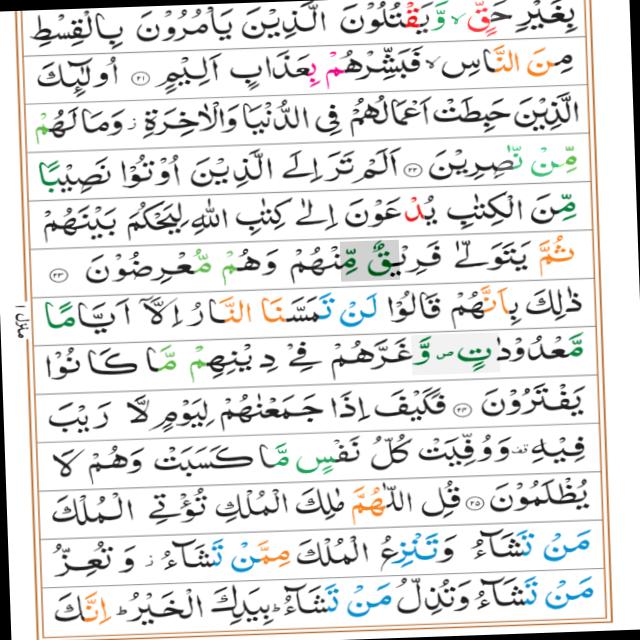 بِغَيْرِ حَقٍّ ۙ وَّيَقْتُلُوْنَ الَّذِيْنَ يَاْمُرُوْنَ بِالْقِسْطِ
مِنَ النَّاسِ ۙ فَبَشِّرْهُمْ بِعَذَابٍ اَلِيْمٍ ۝۲۱ اُولٰٓئِكَ
الَّذِيْنَ حَبِطَتْ اَعْمَالُهُمْ فِى الدُّنْيَا وَالْاٰخِرَةِ ز وَمَا لَهُمْ
مِّنْ نّٰصِرِيْنَ ۝۲۲ اَلَمْ تَرَ اِلَى الَّذِيْنَ اُوْتُوْا نَصِيْبًا
مِّنَ الْكِتٰبِ يُدْعَوْنَ اِلٰى كِتٰبِ اللّٰهِ لِيَحْكُمَ بَيْنَهُمْ
ثُمَّ يَتَوَلّٰى فَرِيْقٌ مِّنْهُمْ وَهُمْ مُّعْرِضُوْنَ ۝۲۳
ذٰلِكَ بِاَنَّهُمْ قَالُوْا لَنْ تَمَسَّنَا النَّارُ اِلَّاۤ اَيَّامًا
مَّعْدُوْدٰتٍ ص وَّغَرَّهُمْ فِىْ دِيْنِهِمْ مَّا كَانُوْا
يَفْتَرُوْنَ ۝۲۴ فَكَيْفَ اِذَا جَمَعْنٰهُمْ لِيَوْمٍ لَّا رَيْبَ
فِيْهِ قف وَوُفِّيَتْ كُلُّ نَفْسٍ مَّا كَسَبَتْ وَهُمْ لَا
يُظْلَمُوْنَ ۝۲۵ قُلِ اللّٰهُمَّ مٰلِكَ الْمُلْكِ تُؤْتِى الْمُلْكَ
مَنْ تَشَآءُ وَتَنْزِعُ الْمُلْكَ مِمَّنْ تَشَآءُ ز وَتُعِزُّ
مَنْ تَشَآءُ وَتُذِلُّ مَنْ تَشَآءُ ؕ بِيَدِكَ الْخَيْرُ ؕ اِنَّكَ
منزل ۱